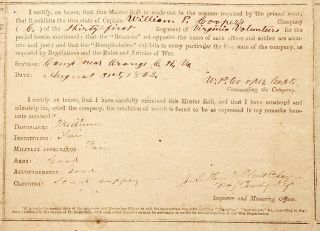 I certify, on honor, that this Muster Roll is made out in the manner required by the printed notes; that
it exhibits the true state of Captain William P. Cooper's Company
(C,) of the Thirty first Regiment of Virginia Volunteers for the
period herein mentioned; that the "Remarks" set opposite the name of each officer and soldier are accu-
rate and just; and that the "Recapitulation" exhibits in every particular the true state of the company, as
required by Regulations and the Rules and Articles of War.
STATION: Camp near Orange C. H. Va
DATE: August 31st 1863.
W. P. Cooper Capt.
Commanding the Company.
I certify, on honor, that I have carefully examined this Muster Roll, and that I have mustered and
inspected the company, the condition of which is found to be as expressed in my remarks hereto
DISCIPLINE: Medium
INSTRUCTION: Fair
MILITARY APPEARANCE: Fair
ARMS: Good
ACCOUTREMENTS: Good
CLOTHING: supply
Inspector and Mustering Officer.